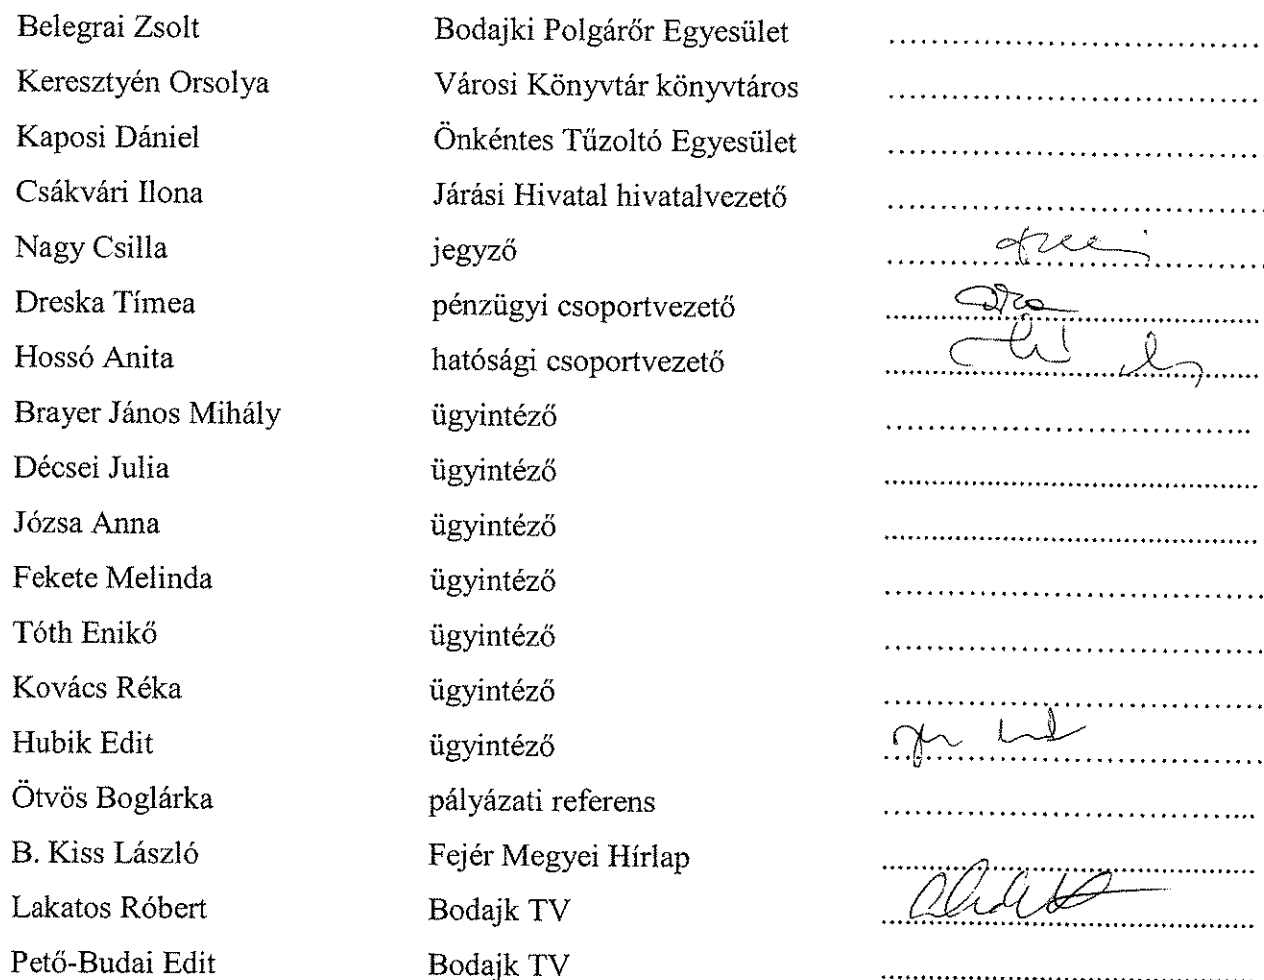 Belegrai Zsolt Bodajki Polgárőr Egyesület ........................................
Keresztyén Orsolya Városi Könyvtár könyvtáros ........................................
Kaposi Dániel Önkéntes Tűzoltó Egyesület ........................................
Csákvári Ilona Járási Hivatal hivatalvezető ........................................
Nagy Csilla jegyző ........................................
Dreska Tímea pénzügyi csoportvezető ........................................
Hossó Anita hatósági csoportvezető ........................................
Brayer János Mihály ügyintéző ........................................
Décsei Julia ügyintéző ........................................
Józsa Anna ügyintéző ........................................
Fekete Melinda ügyintéző ........................................
Tóth Enikő ügyintéző ........................................
Kovács Réka ügyintéző ........................................
Hubik Edit ügyintéző ........................................
Ötvös Boglárka pályázati referens ........................................
B. Kiss László Fejér Megyei Hírlap ........................................
Lakatos Róbert Bodajk TV ........................................
Pető-Budai Edit Bodajk TV ........................................